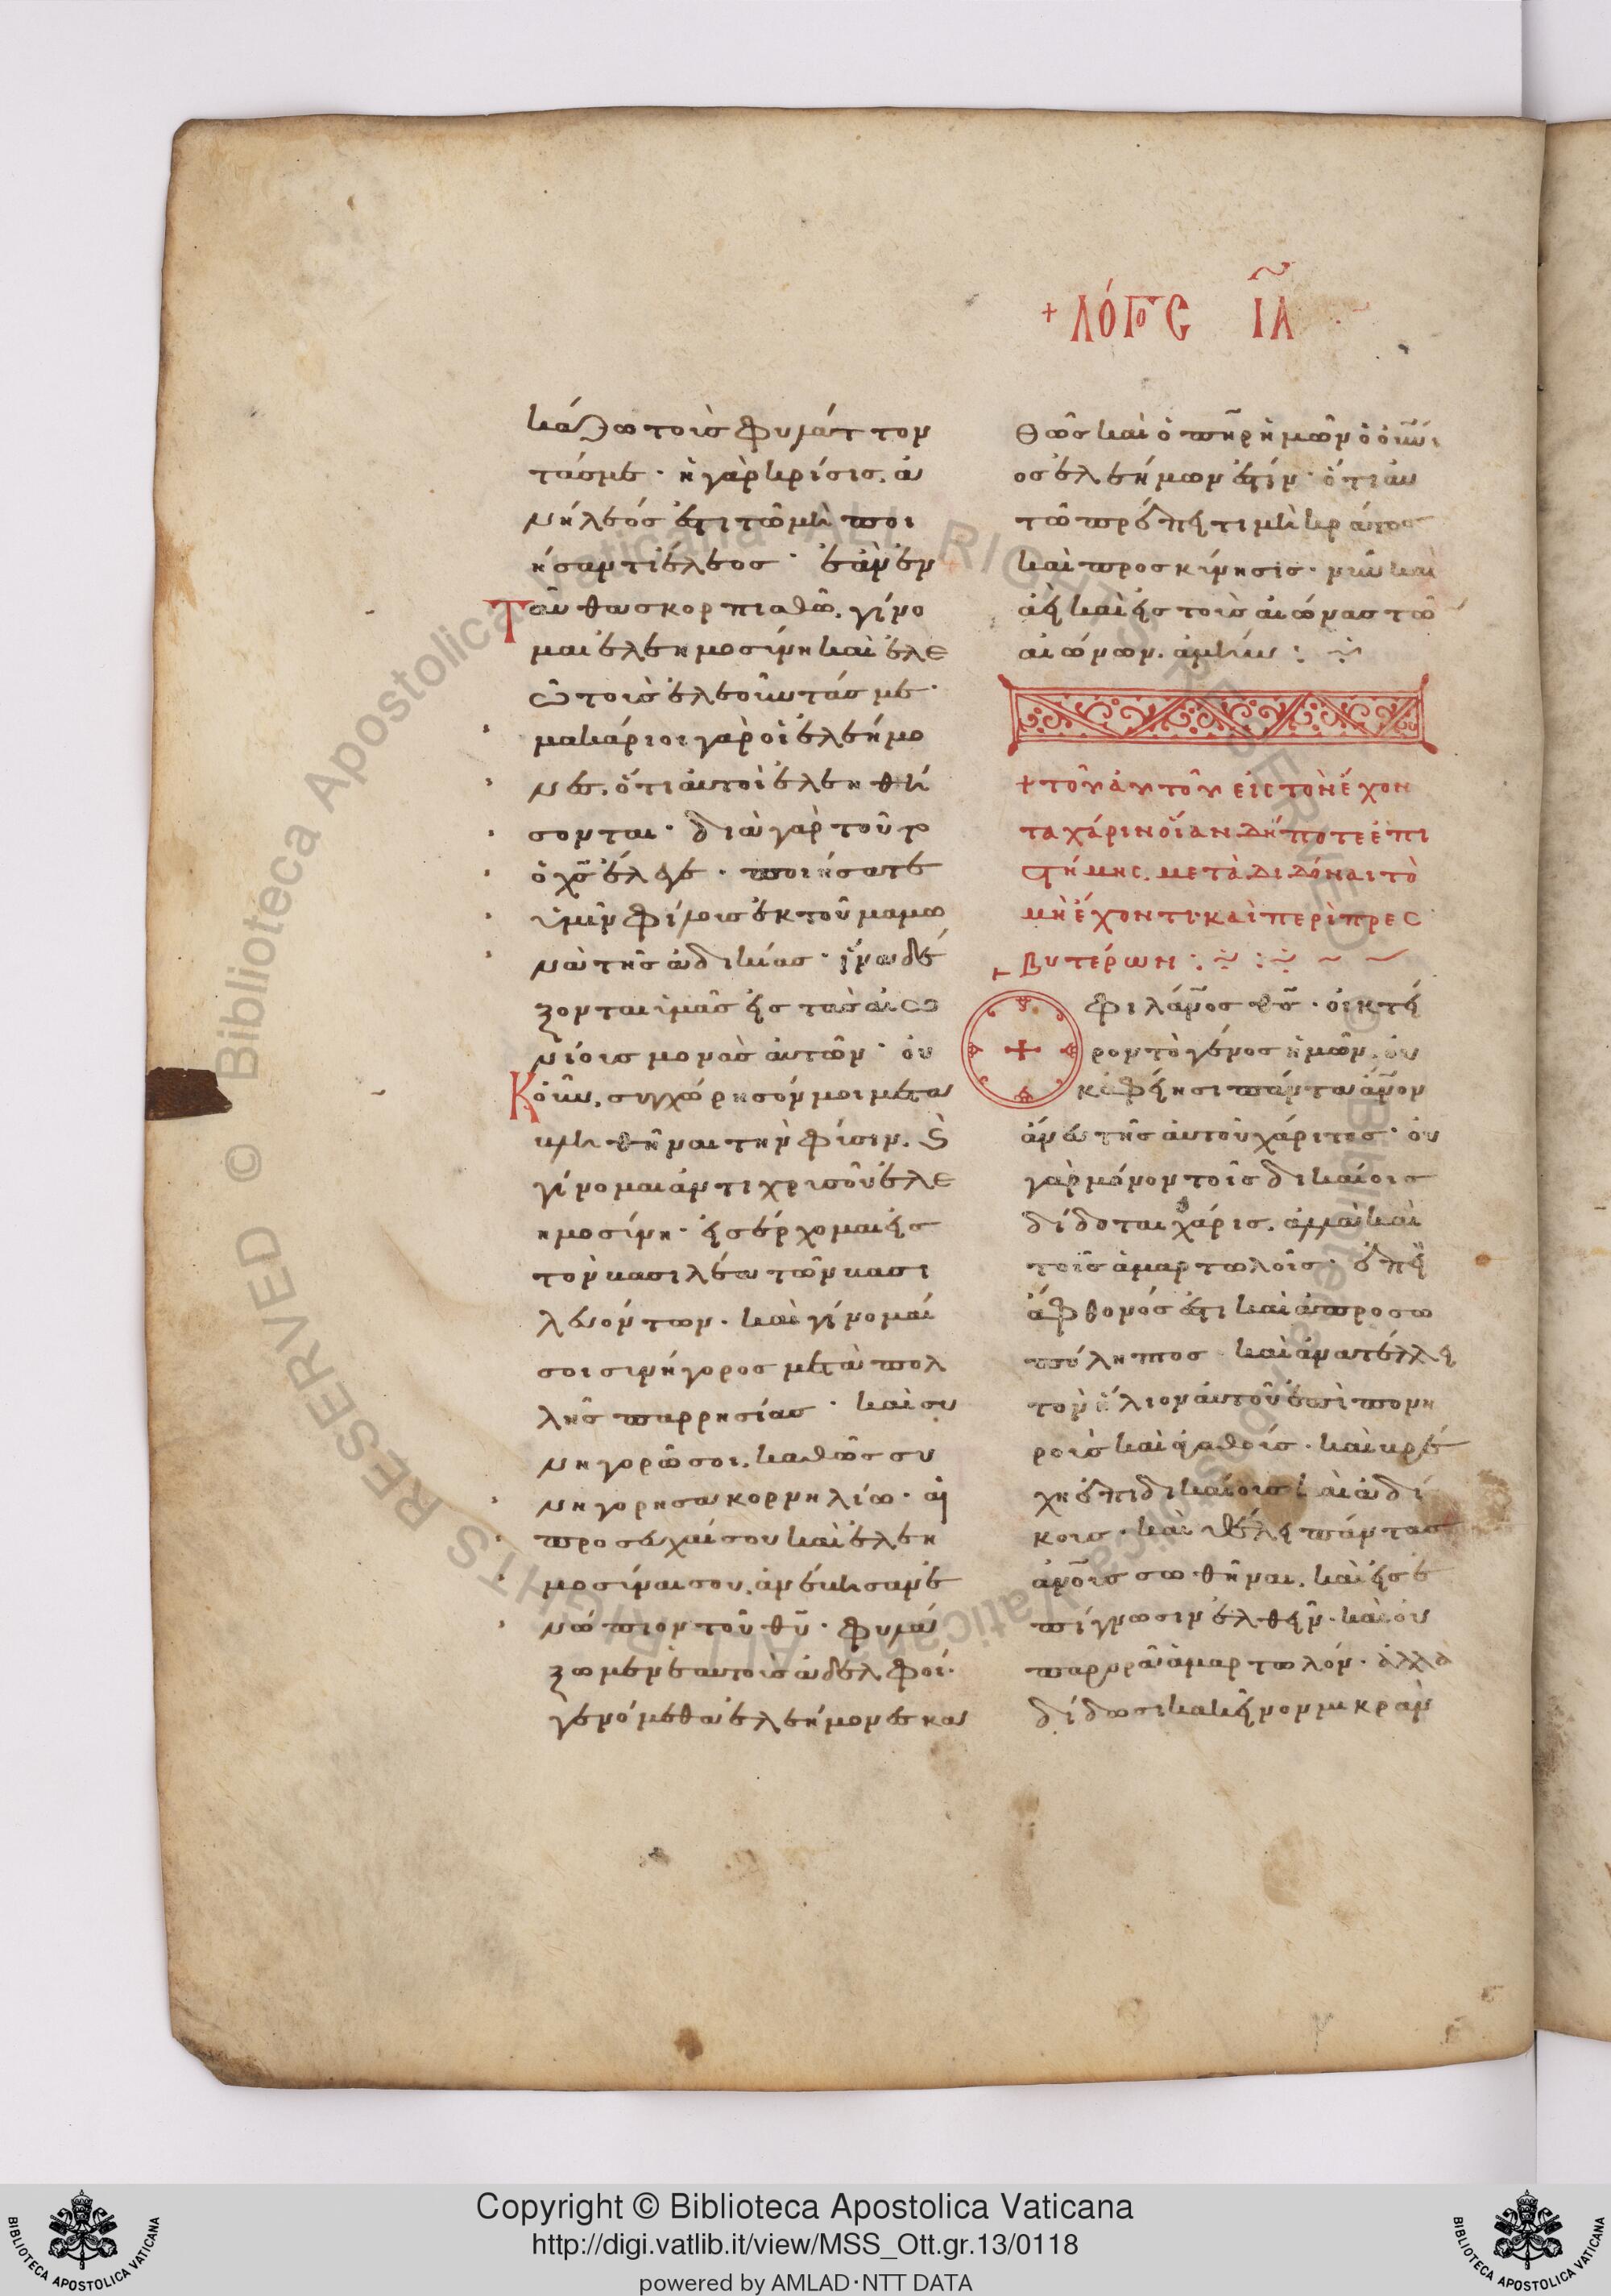 + ΛΌΓΟC ΙΑ
κάζω τοὺς φυλάττον
τάς με · ἡ γὰρ κρίσις ἀ
νήλεός ἐστι τῷ μὴ ποι
ήσαντι ἔλεος · ἐὰν ἐν
Ταῦθα σκορπισθῶ, γίνο
μαι ἐλεημοσύνη καὶ ἐλε
ῶ τοὺς ἐλεοῦντάς με ·
μακάριοι γὰρ οἱ ἐλεήμο
νες, ὅτι αὐτοὶ ἐλεηθή
σονται · διὰ γὰρ τοῦτο
ὁ χς ἔλεγε · ποιήσατε
ὑμῖν φίλους ἐκ τοῦ μαμω
νᾶ τῆς ἀδικίας · ἵνα δέ
ξονται ὑμᾶς εἰς τὰς αἰω
νίους μονὰς αὐτῶν · οὐ
Κοῦν, συγχώρησόν μοι μετα
βληθῆναι τὴν φύσιν, καὶ
γίνομαι ἀντὶ χρυσοῦ ἐλε
ημοσύνη · εἰσέρχομαι εἰς
τὸν βασιλέα τῶν βασι
λευόντων · καὶ γίνομαί
σοι συνήγορος μετὰ πολ
λῆς παρρησίας · καὶ συ
νηγορῶ σοι, καθὼς συ
νηγόρησα κορνηλίω · αἱ
προσευχαί σου καὶ ἐλεη
μοσύναι σου, ἀνέβησαν ἐ
νώπιον τοῦ θυ · φυλά
ξωμεν ἑαυτοὺς ἀδελφοί ·
γενόμεθα ἐλεήμονες κα
θὼς καὶ ὁ πηρ ἡμῶν ὁ οὐνι
ος ἐλεήμων ἐστίν · ὅτι αὐ
τῶ πρέπει τιμὴ κράτος
καὶ προσκύνησις · νῦν καὶ
ἀεὶ καὶ εἰς τοὺς αἰῶνας τῶ
αἰώνων, ἀμήν :
+ τοῦ αὐτοῦ εἰς τὸν ἔχον
τα χάριν οἵαν δήποτε ἐπι
στήμης, μεταδιδόναι τὸ
μὴ ἔχοντι · καὶ περὶ πρεσ
βυτέρων :
Ὁ φιλάνος θς · οἰκτεί
ρον τὸ γένος ἡμῶν, οὐ
κ ἀφείησι πάντα ἄνον
ἄνευ τῆς αὐτοῦ χάριτος · οὐ
γὰρ μόνον τοῖς δικαίοις
δίδοται χάρις, ἀλλὰ καὶ
τοῖς ἁμαρτωλοῖς · ἐπεὶ
ἄφθονός ἐστι καὶ ἀπροσω
πόληπτος · καὶ ἀνατέλλει
τὸν ἥλιον αὐτοῦ ἐπὶ πονη
ροὺς καὶ ἀγαθούς · καὶ βρέ
χει ἐπὶ δικαίους καὶ ἀδί
κους · καὶ θέλει πάντας
ἀνους σωθῆναι, καὶ εἰς ἐ
πίγνωσιν ἐλθεῖν · καὶ οὐ
παρορᾶ ἁμαρτωλόν · ἀλλὰ
δίδωσι κακεῖνον μικρὰν
BIBLIOTECA APOSTOLICA VATICANA
Copyright © Biblioteca Apostolica Vaticana
http://digi.vatlib.it/view/MSS_Ott.gr.13/0118
powered by AMLAD·NTT DATA
BIBLIOTECA APOSTOLICA VATICANA